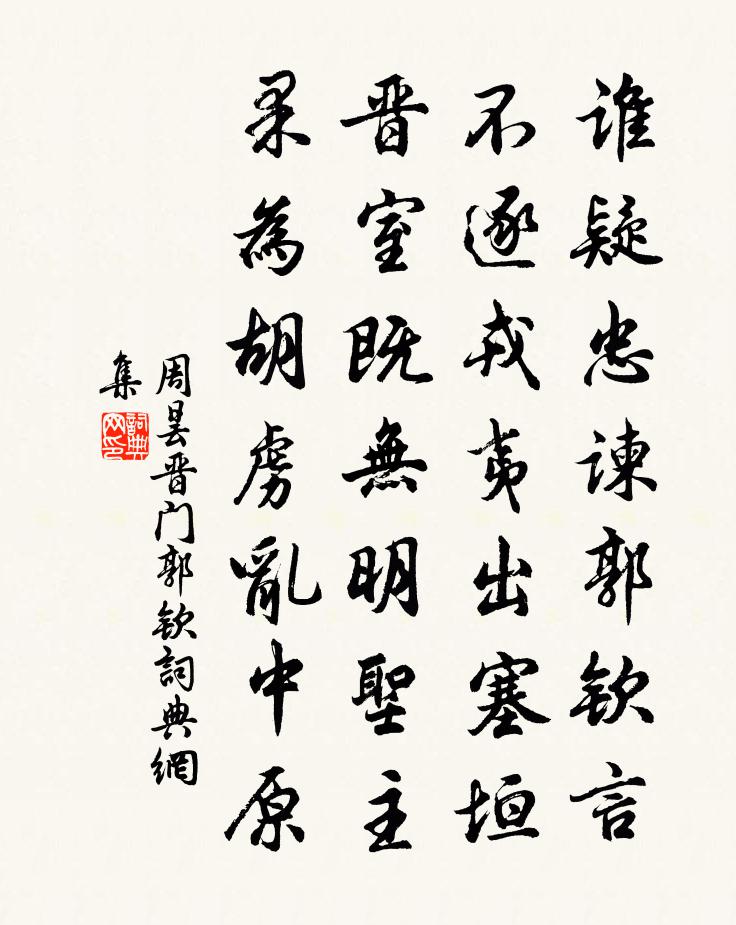 誰疑忠諫郭欽言
不逐戎夷出塞垣
晋室既無明聖主
果為胡虜亂中原
周曇晋门郭欽詞典網
集
詞典
网印